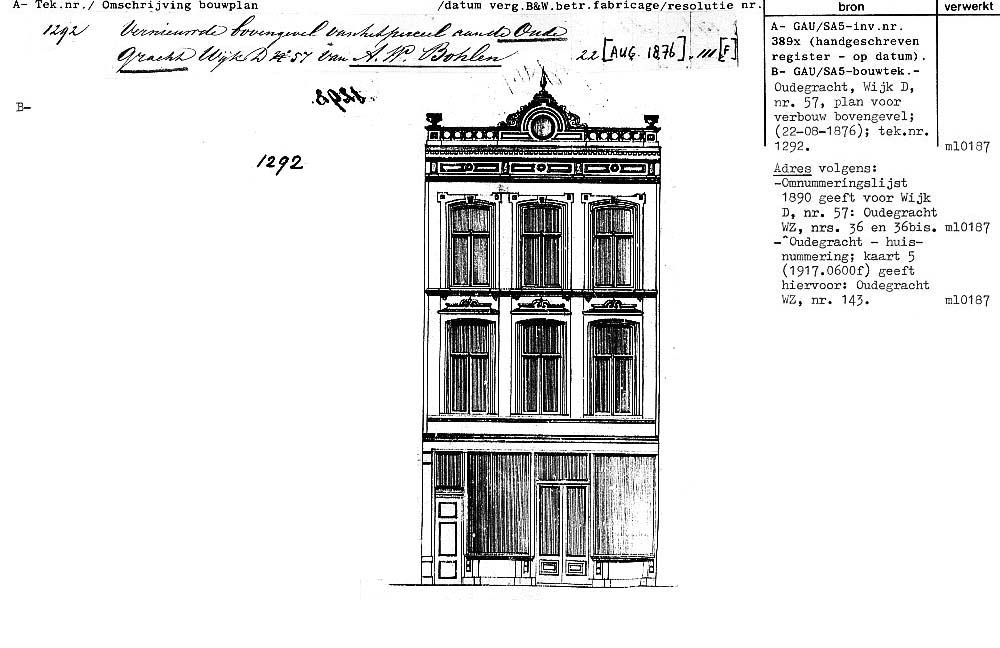 A- Tek.nr./ Omschrijving bouwplan /datum verg.B&W.betr.fabricage/resolutie nr. bron verwerkt
1292 Vernieuwde bovengevel van het perceel aan de Oude
Gracht Wijk D No 57 van A. W. Bohlen 22 [AUG. 1876]. III [F]
B-
1292
A- GAU/SA5-inv.nr.
389x (handgeschreven
register - op datum).
B- GAU/SA5-bouwtek.-
Oudegracht, Wijk D,
nr. 57, plan voor
verbouw bovengevel;
(22-08-1876); tek.nr.
1292. ml0187
Adres volgens:
-Omnummeringslijst
1890 geeft voor Wijk
D, nr. 57: Oudegracht
WZ, nrs. 36 en 36bis. ml0187
-"Oudegracht - huis-
nummering; kaart 5
(1917.0600f) geeft
hiervoor: Oudegracht
WZ, nr. 143. ml0187